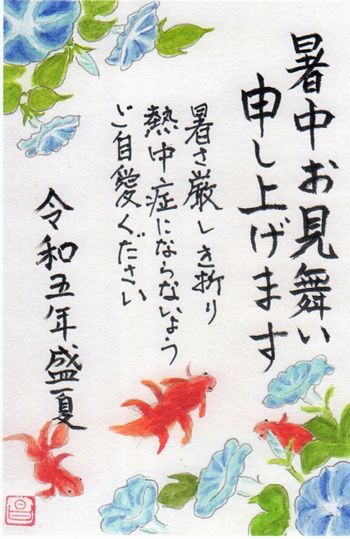 暑中お見舞い
申し上げます
暑さ厳しき折り
熱中症にならないよう
ご自愛ください
令和五年盛夏